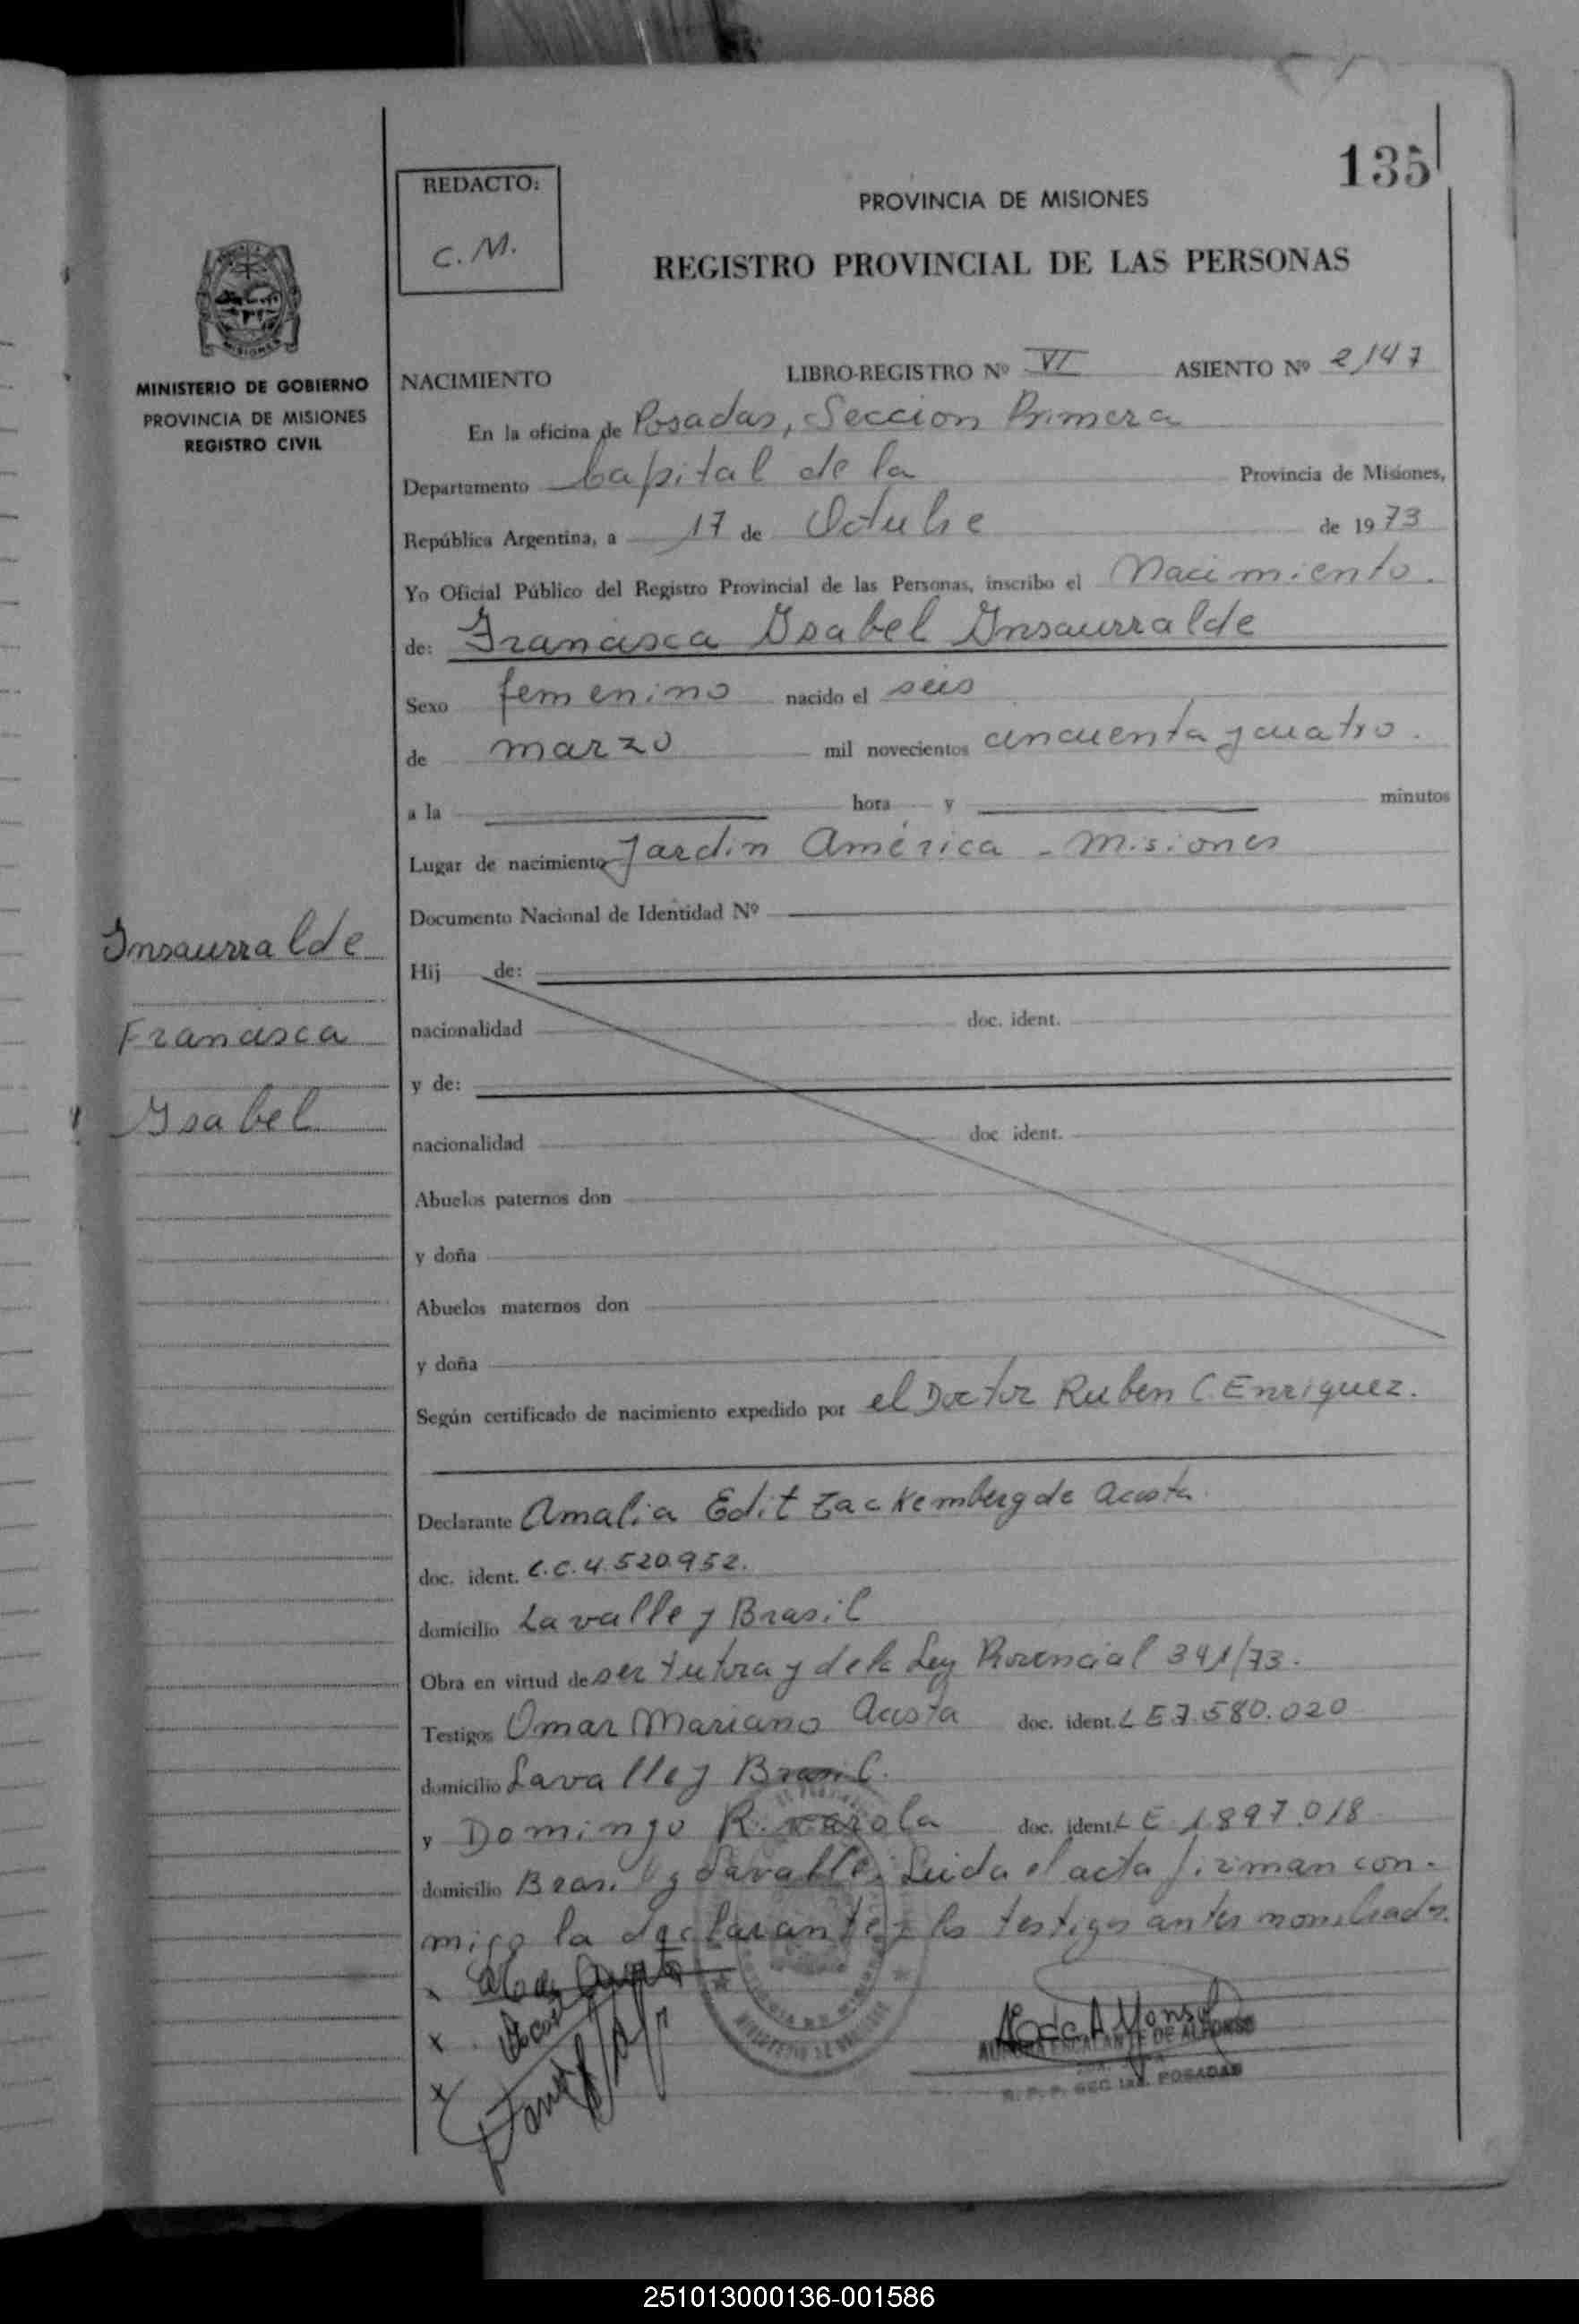 135
REDACTO:
C. M.
PROVINCIA DE MISIONES
REGISTRO PROVINCIAL DE LAS PERSONAS
MISIONES
MINISTERIO DE GOBIERNO
PROVINCIA DE MISIONES
REGISTRO CIVIL
NACIMIENTO LIBRO-REGISTRO Nº VI ASIENTO Nº 2,147
En la oficina de Posadas, Seccion Primera
Departamento Capital de la Provincia de Misiones,
República Argentina, a 17 de Octubre de 1973
Yo Oficial Público del Registro Provincial de las Personas, inscribo el Nacimiento.
de: Francisca Ysabel Insaurralde
Sexo femenino nacido el seis
de marzo mil novecientos cincuenta y cuatro.
a la hora y minutos
Lugar de nacimiento Jardin América - Misiones
Documento Nacional de Identidad Nº
Insaurralde
Francisca
Ysabel
Hij de:
nacionalidad doc. ident.
y de:
nacionalidad doc ident.
Abuelos paternos don
y doña
Abuelos maternos don
y doña
Según certificado de nacimiento expedido por el Doctor Ruben C. Enriquez.
Declarante Amalia Edit Zackemberg de Acosta
doc. ident. C.C. 4.520.952.
domicilio Lavalle y Brasil
Obra en virtud de ser tutora y de la Ley Provincial 341/73.
Testigos Omar Mariano Acosta doc. ident. L E 7.580.020
domicilio Lavalle y Brasil.
y Domingo R. doc. ident. L E 1.897.018
domicilio Brasil y Lavalle. Leida el acta firman con-
migo la declarante y los testigos antes nombrados.
AURORA ESCALANTE DE ALFONSO
R. P. P. SEC. 1ra. POSADAS
251013000136-001586